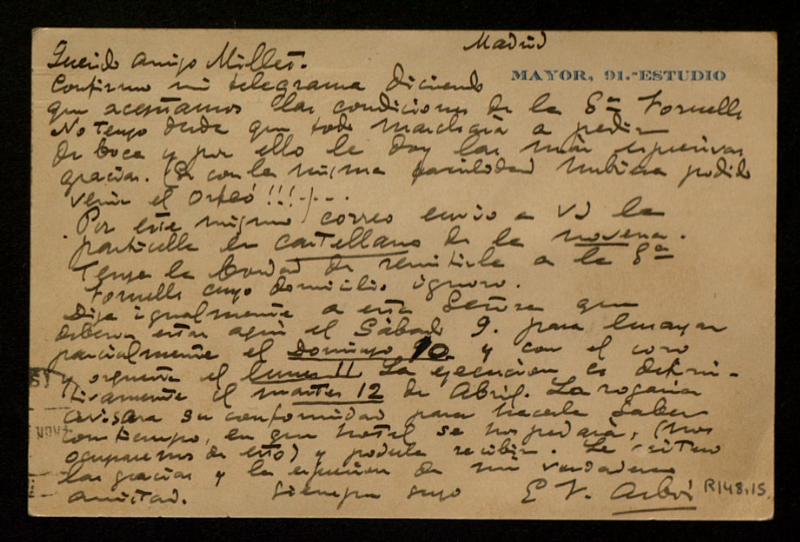 Madrid
MAYOR, 91.-ESTUDIO
Querido amigo Millet.
Confirmo mi telegrama diciendo
que aceptamos las condiciones de la Sra Fornells
No tengo duda que todo marchará a pedir
de boca y por ello le doy las más expresivas
gracias. Si con la misma facilidad hubiera podido
venir el Orfeó!!!....
Por este mismo correo envio a Vd la
particella en castellano de la novena.
Tenga la bondad de remitirla a la Sra
Fornells cuyo domicilio ignoro.
Dije igualmente a esta Señora que
debera estar aqui el Sábado 9. para ensayar
parcialmente el Domingo 10 y con el coro
y orquesta el lunes 11 La ejecucion es defini-
tivamente el martes 12 de Abril. La rogaria
avisara su conformidad para hacerla saber
con tiempo, en que hotel se hospedará, (nos
ocuparemos de esto) y poderla recibir. Le reitero
las gracias y la expresion de mi verdadera
amistad. Siempre suyo E F. Arbós
R148,15